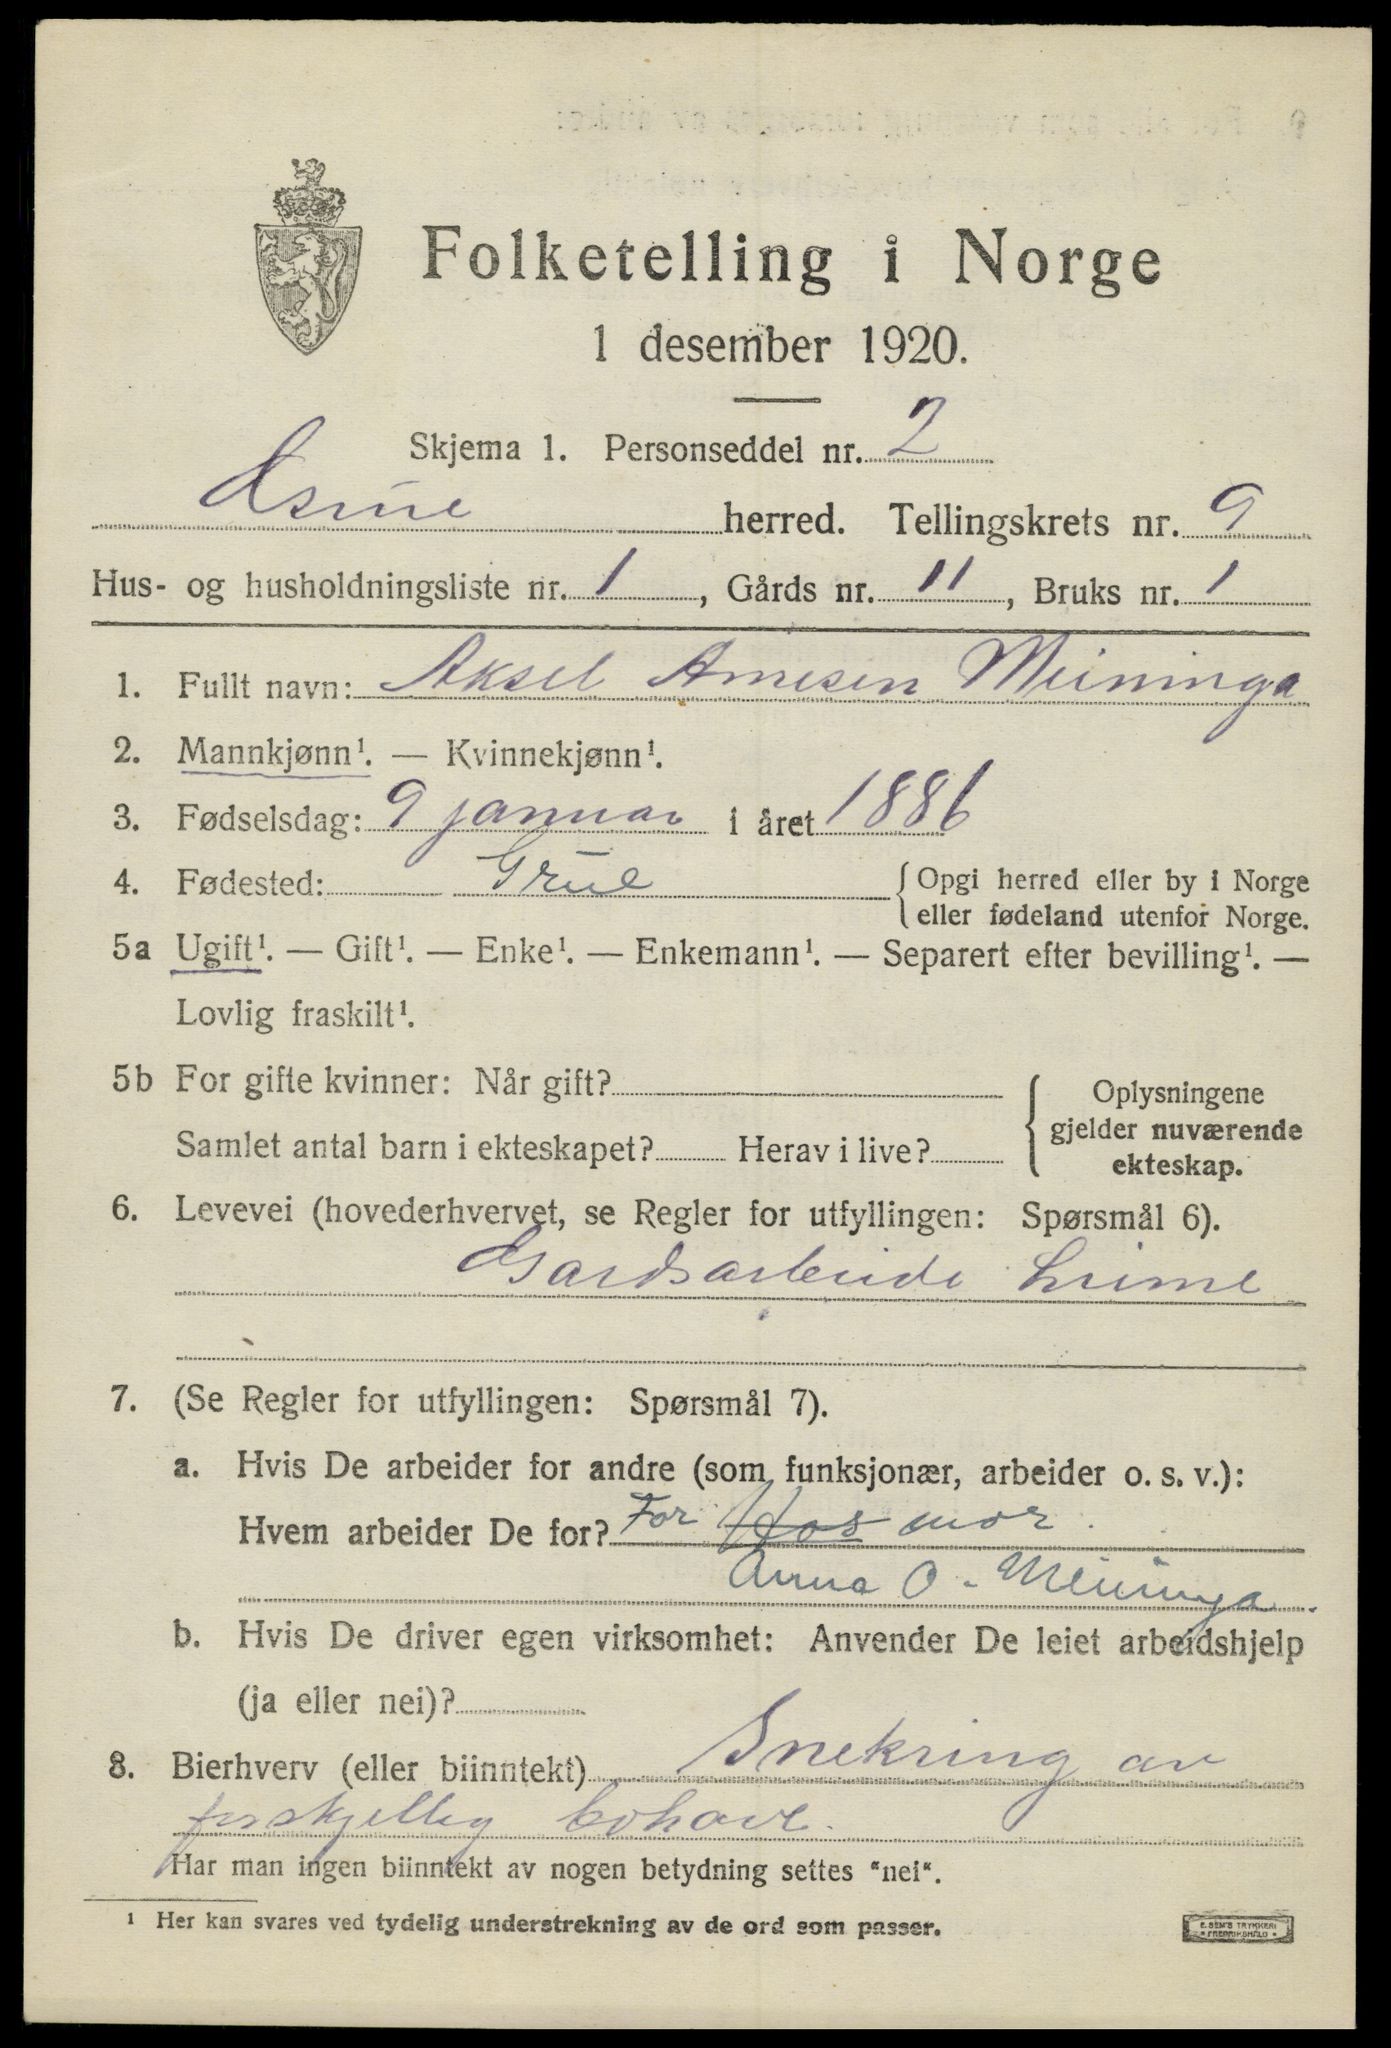 Folketelling i Norge
1 desember 1920.
Skjema 1. Personseddel nr. 2
herred. Tellingskrets nr. 9
Hus- og husholdningsliste nr. 1, Gårds nr. 11, Bruks nr. 1
1. Fullt navn: Aksel Arnesen Meininga
2. Mannkjønn¹. — Kvinnekjønn¹.
3. Fødselsdag: 9 januar i året 1886
4. Fødested: Grue { Opgi herred eller by i Norge
eller fødeland utenfor Norge.
5a Ugift¹. — Gift¹. — Enke¹. — Enkemann¹. — Separert efter bevilling¹. —
Lovlig fraskilt¹.
5b For gifte kvinner: Når gift? { Oplysningene
gjelder nuværende
Samlet antal barn i ekteskapet? Herav i live?
ekteskap.
6. Levevei (hovederhvervet, se Regler for utfyllingen: Spørsmål 6).
Gardsarbeide
7. (Se Regler for utfyllingen: Spørsmål 7).
a. Hvis De arbeider for andre (som funksjonær, arbeider o. s. v.):
Hvem arbeider De for? For Hos mor.
Anna O. Meininga.
b. Hvis De driver egen virksomhet: Anvender De leiet arbeidshjelp
(ja eller nei)?
8. Bierhverv (eller biinntekt) Snekring av
forskjellig bohave.
Har man ingen biinntekt av nogen betydning settes "nei".
¹ Her kan svares ved tydelig understrekning av de ord som passer.
E. SEM'S TRYKKERI
FREDRIKSHALD